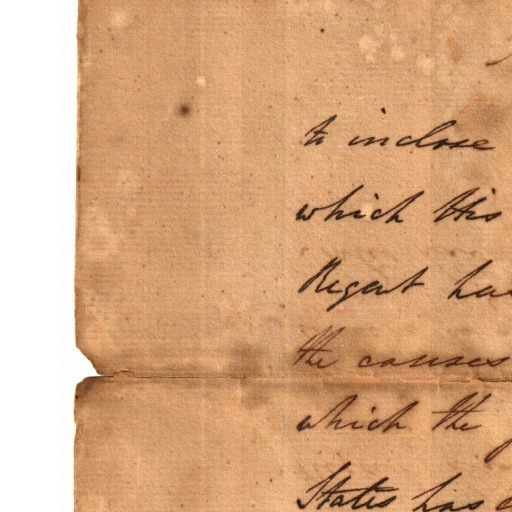 to inclose
which His
Regent
the causes
which the
States has